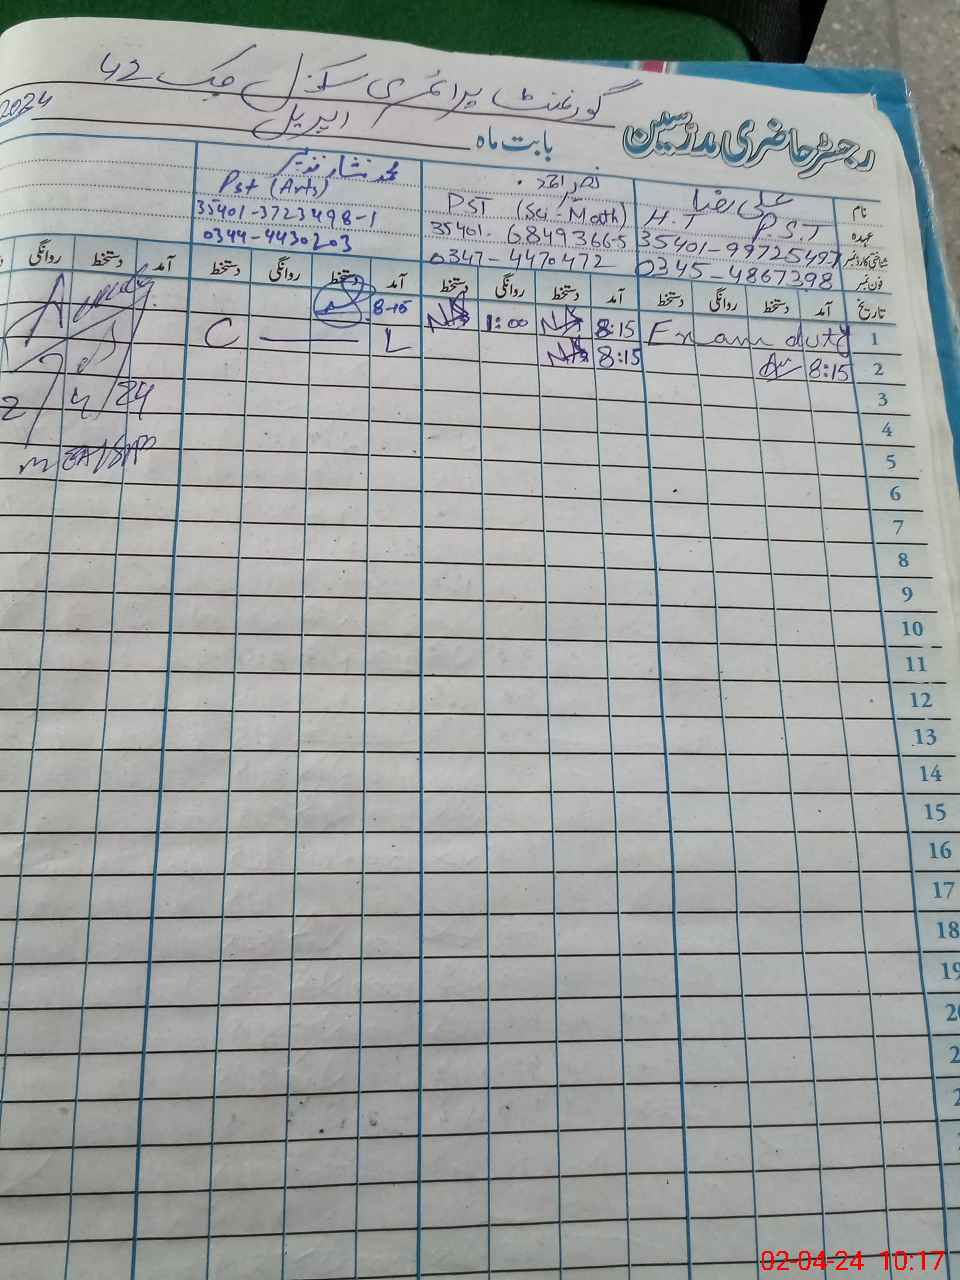 گورنمنٹ پرائمری سکول چک 42
رجسٹر حاضری مدرسین
بابت ماہ اپریل 2024
نام علی رضا
نصیر احمد
محمد نثار نذیر
عہدہ H.T P.S.T
PST (Sci-Math)
Pst (Arts)
شناختی کارڈ نمبر
35401-6849366-5
35401-3723498-1
فون نمبر 0345-4867398
0347-4470472
0344-4430203
تاریخ آمد دستخط روانگی دستخط آمد دستخط روانگی دستخط آمد دستخط روانگی دستخط آمد دستخط روانگی
1 Exam duty 8:15 1:00 8-15
2 8:15 8:15 L C
2/4/24
3
4
5
6
7
8
9
10
11
12
13
14
15
16
17
18
19
02-04-24 10:17